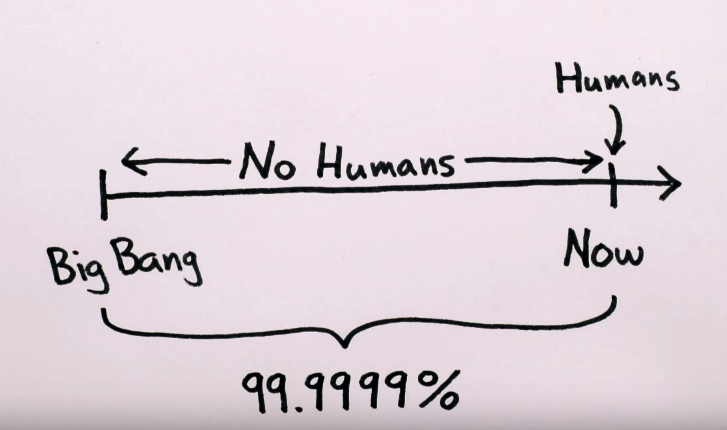 Humans
No Humans
Big Bang
Now
99.9999%